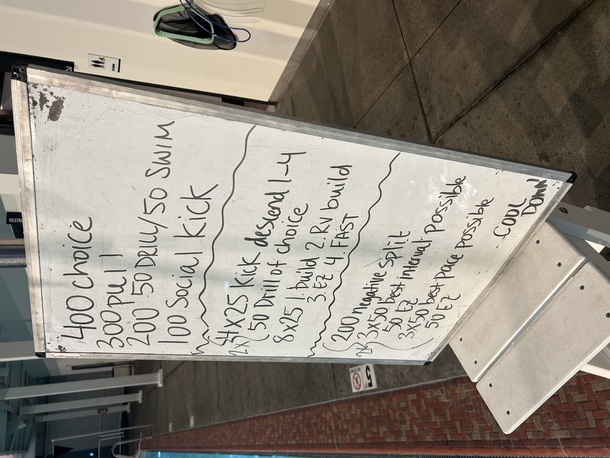 400 choice
300 pull
200 50 Drill/50 SWIM
100 Social Kick
2x
4x25 Kick descend 1-4
50 Drill of choice
8x25 1. build 2. RV build
3. EZ 4. FAST
2x
200 negative split
3x50 best interval possible
50 EZ
3x50 best pace possible
50 EZ
COOL
DOWN
5